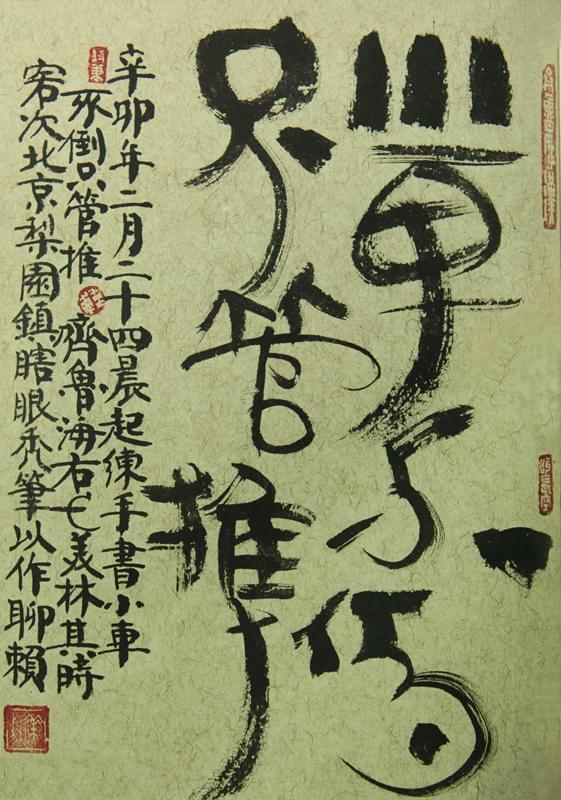 小車不倒
只管推
辛卯年二月二十四晨起練手書小車
不倒只管推 齊魯海右美林其時
客次北京梨園鎮瞎眼禿筆以作聊賴